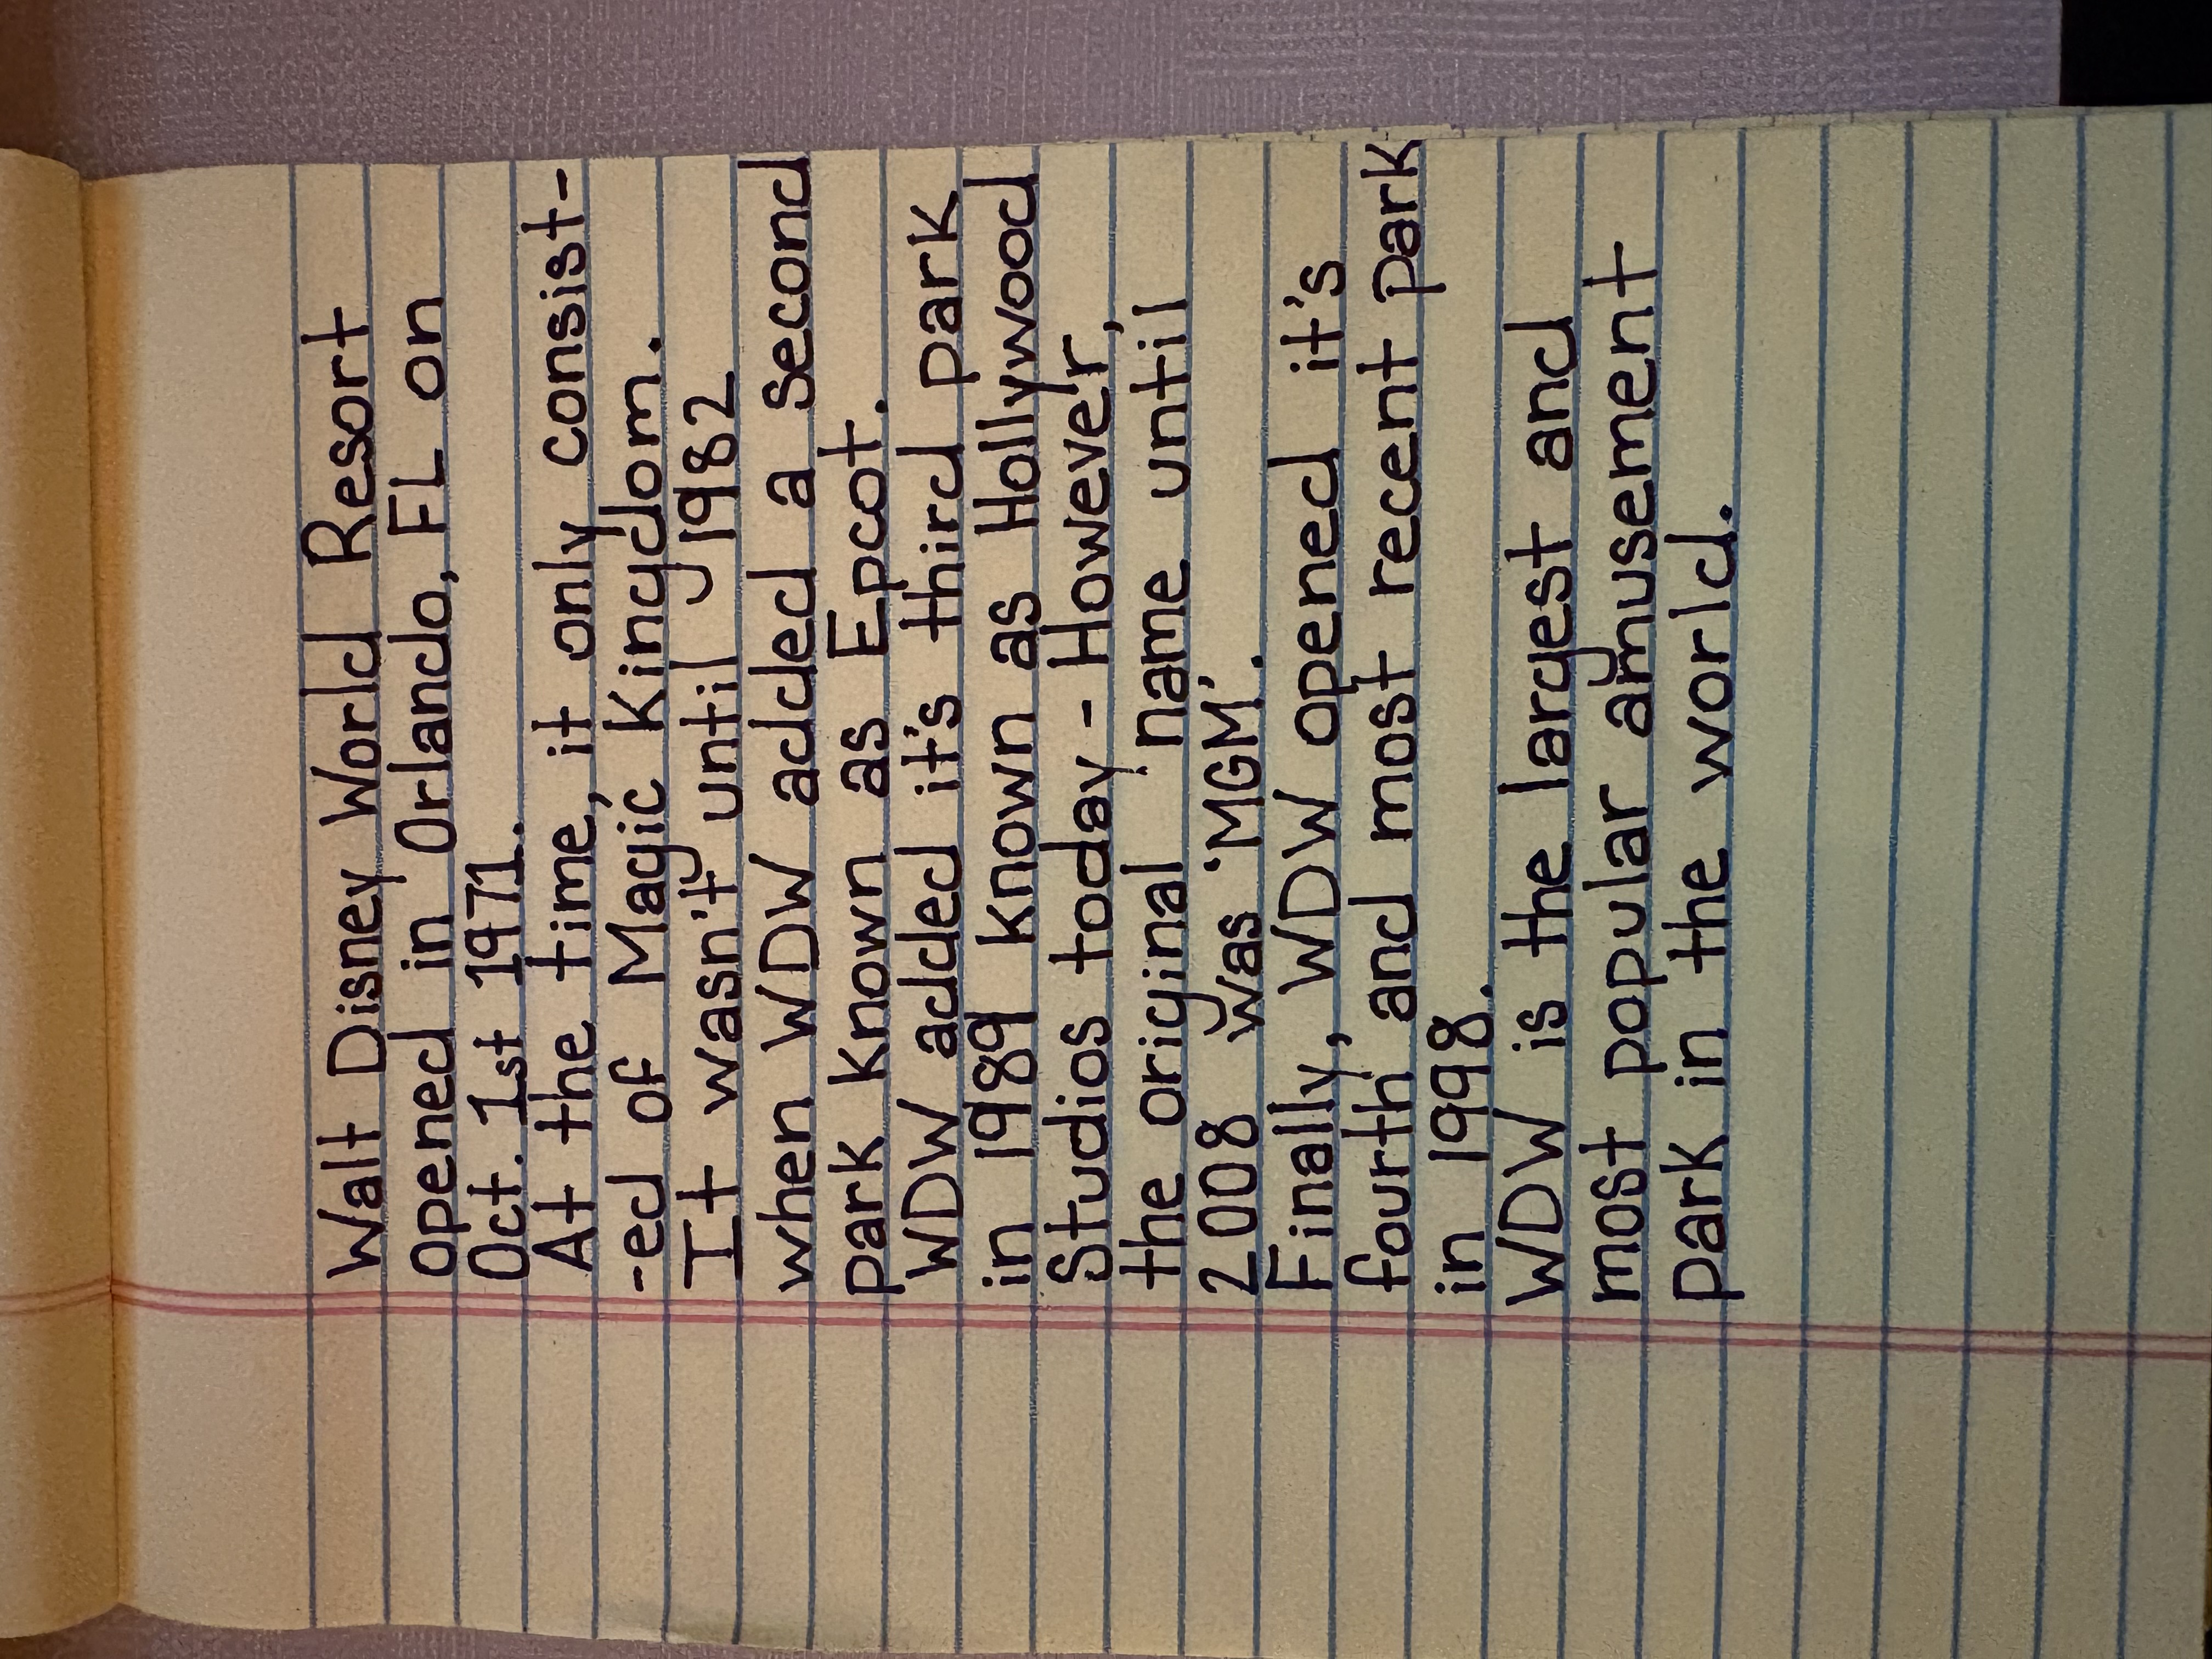 Walt Disney World Resort
opened in Orlando, FL on
Oct. 1st 1971.
At the time, it only consist-
-ed of Magic Kingdom.
It wasn't until 1982
when WDW added a second
park known as Epcot.
WDW added it's third park
in 1989 known as Hollywood
Studios today - However,
the original name until
2008 was 'MGM'.
Finally, WDW opened it's
fourth and most recent park
in 1998.
WDW is the largest and
most popular amusement
park in the world.